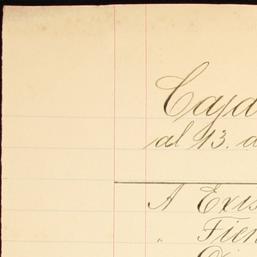 Caja
al 13. d
A Exis
„ Fien